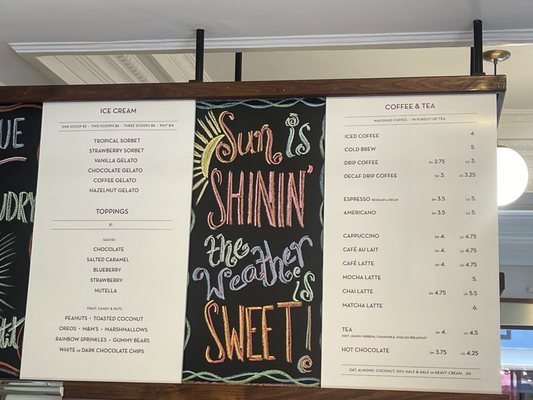 UE
UDRY
ICE CREAM
ONE SCOOP $3 • TWO SCOOPS $6 • THREE SCOOPS $8 • PINT $14
TROPICAL SORBET
STRAWBERRY SORBET
VANILLA GELATO
CHOCOLATE GELATO
COFFEE GELATO
HAZELNUT GELATO
TOPPINGS
$1
SAUCES
CHOCOLATE
SALTED CARAMEL
BLUEBERRY
STRAWBERRY
NUTELLA
FRUIT, CANDY & NUTS
PEANUTS • TOASTED COCONUT
OREOS • M&M'S • MARSHMALLOWS
RAINBOW SPRINKLES • GUMMY BEARS
WHITE OR DARK CHOCOLATE CHIPS
Sun is
SHININ'
the
Weather
is
SWEET!
COFFEE & TEA
COFFEE - IN PURSUIT OF TEA
ICED COFFEE 4.
COLD BREW 5.
DRIP COFFEE SM 2.75 LG 3.
DECAF DRIP COFFEE SM 3. LG 3.25
ESPRESSO REGULAR & DECAF SM 3.5 LG 5.
AMERICANO SM 3.5 LG 5.
CAPPUCCINO SM 4. LG 4.75
CAFÉ AU LAIT SM 4. LG 4.75
CAFÉ LATTE SM 4. LG 4.75
MOCHA LATTE 5.
CHAI LATTE SM 4.75 LG 5.5
MATCHA LATTE 6.
TEA SM 4. LG 4.5
MINT, LEMON VERBENA, CHAMOMILE, ENGLISH BREAKFAST
HOT CHOCOLATE SM 3.75 LG 4.25
OAT, ALMOND, COCONUT, SOY, HALF & HALF OR HEAVY CREAM, .50